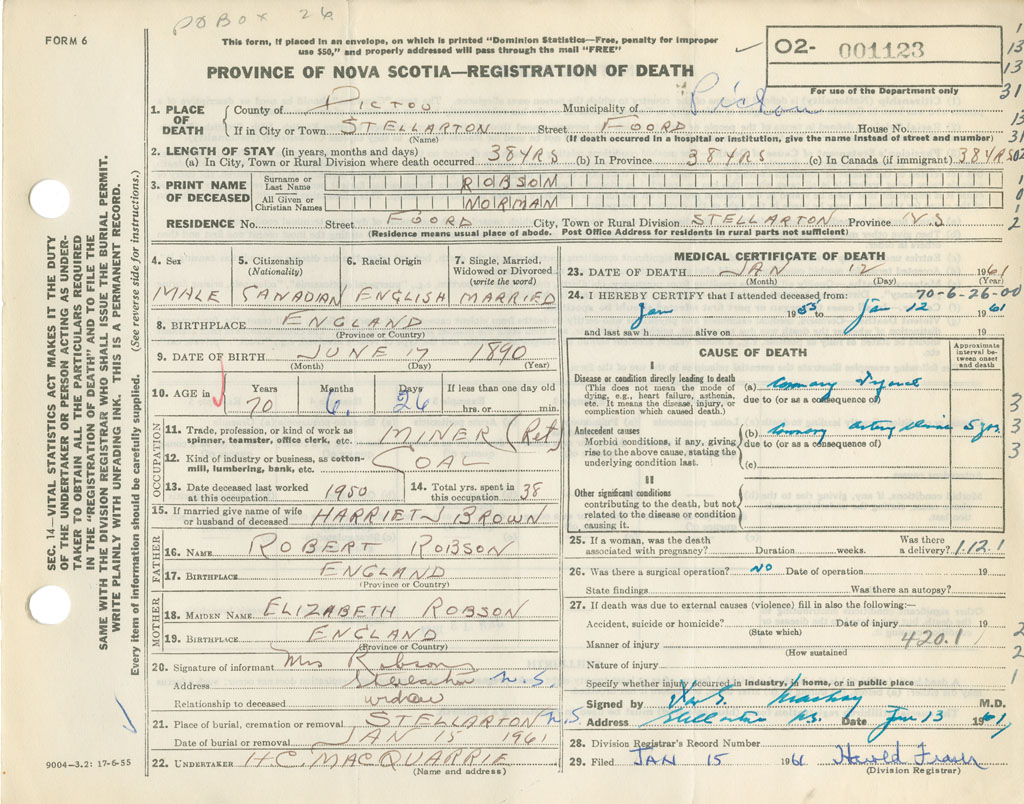 PO BOX 26
FORM 6
This form, if placed in an envelope, on which is printed "Dominion Statistics—Free, penalty for improper
use $50," and properly addressed will pass through the mail "FREE"
02- 001123
For use of the Department only
PROVINCE OF NOVA SCOTIA—REGISTRATION OF DEATH
1. PLACE OF DEATH County of PICTOU Municipality of Pictou
If in City or Town STELLARTON Street FOORD House No.
(Name) (If death occurred in a hospital or institution, give the name instead of street and number)
2. LENGTH OF STAY (in years, months and days)
(a) In City, Town or Rural Division where death occurred 38 YRS (b) In Province 38 YRS (c) In Canada (if immigrant) 38 YRS
3. PRINT NAME OF DECEASED Surname or Last Name ROBSON
All Given or Christian Names NORMAN
RESIDENCE No. Street FOORD City, Town or Rural Division STELLARTON Province N.S.
(Residence means usual place of abode. Post Office Address for residents in rural parts not sufficient)
4. Sex MALE
5. Citizenship (Nationality) CANADIAN
6. Racial Origin ENGLISH
7. Single, Married, Widowed or Divorced (write the word) MARRIED
8. BIRTHPLACE ENGLAND
(Province or Country)
9. DATE OF BIRTH JUNE 17 1890
(Month) (Day) (Year)
10. AGE in Years 70 Months 6 Days 26 If less than one day old hrs. or min.
OCCUPATION
11. Trade, profession, or kind of work as spinner, teamster, office clerk, etc. MINER (Ret)
12. Kind of industry or business, as cotton-mill, lumbering, bank, etc. COAL
13. Date deceased last worked at this occupation 1950
14. Total yrs. spent in this occupation 38
15. If married give name of wife or husband of deceased HARRIET J BROWN
FATHER
16. NAME ROBERT ROBSON
17. BIRTHPLACE ENGLAND
(Province or Country)
MOTHER
18. MAIDEN NAME ELIZABETH ROBSON
19. BIRTHPLACE ENGLAND
(Province or Country)
20. Signature of informant Mrs Robson
Address Stellarton N.S.
Relationship to deceased widow
21. Place of burial, cremation or removal STELLARTON N.S.
Date of burial or removal JAN 15 1961
22. UNDERTAKER H.C. MACQUARRIE
(Name and address)
MEDICAL CERTIFICATE OF DEATH
23. DATE OF DEATH JAN 12 1961
(Month) (Day) (Year)
24. I HEREBY CERTIFY that I attended deceased from: 70-6-26-00
Jan 1953 to Jan 12 1961
and last saw h alive on 19
CAUSE OF DEATH
Approximate interval between onset and death
I
Disease or condition directly leading to death
(This does not mean the mode of dying, e.g., heart failure, asthenia, etc. It means the disease, injury, or complication which caused death.)
(a) Coronary
due to (or as a consequence of)
Antecedent causes
Morbid conditions, if any, giving rise to the above cause, stating the underlying condition last.
(b) Coronary artery disease 5 yrs.
due to (or as a consequence of)
(c)
II
Other significant conditions
contributing to the death, but not related to the disease or condition causing it.
25. If a woman, was the death associated with pregnancy? Duration weeks. Was there a delivery? 1.12.1
26. Was there a surgical operation? NO Date of operation 19
State findings Was there an autopsy?
27. If death was due to external causes (violence) fill in also the following:—
Accident, suicide or homicide? Date of injury 19
(State which)
Manner of injury 420.1
(How sustained
Nature of injury
Specify whether injury occurred in industry, in home, or in public place
Signed by Mackay M.D.
Address Stellarton N.S. Date Jan 13 1961
28. Division Registrar's Record Number
29. Filed JAN 15 1961 Harold Fraser
(Division Registrar)
SEC. 14—VITAL STATISTICS ACT MAKES IT THE DUTY
OF THE UNDERTAKER OR PERSON ACTING AS UNDER-
TAKER TO OBTAIN ALL THE PARTICULARS REQUIRED
IN THE "REGISTRATION OF DEATH" AND TO FILE THE
SAME WITH THE DIVISION REGISTRAR WHO SHALL ISSUE THE BURIAL PERMIT.
WRITE PLAINLY WITH UNFADING INK. THIS IS A PERMANENT RECORD.
Every item of information should be carefully supplied. (See reverse side for instructions.)
9004—3.2: 17-6-55